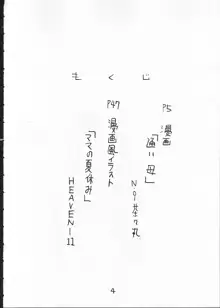 もくじ
P5 漫画
「通い母」
NOI世々礼
P47 漫画風イラスト
「ママの夏休み」
HEAVEN-11
4